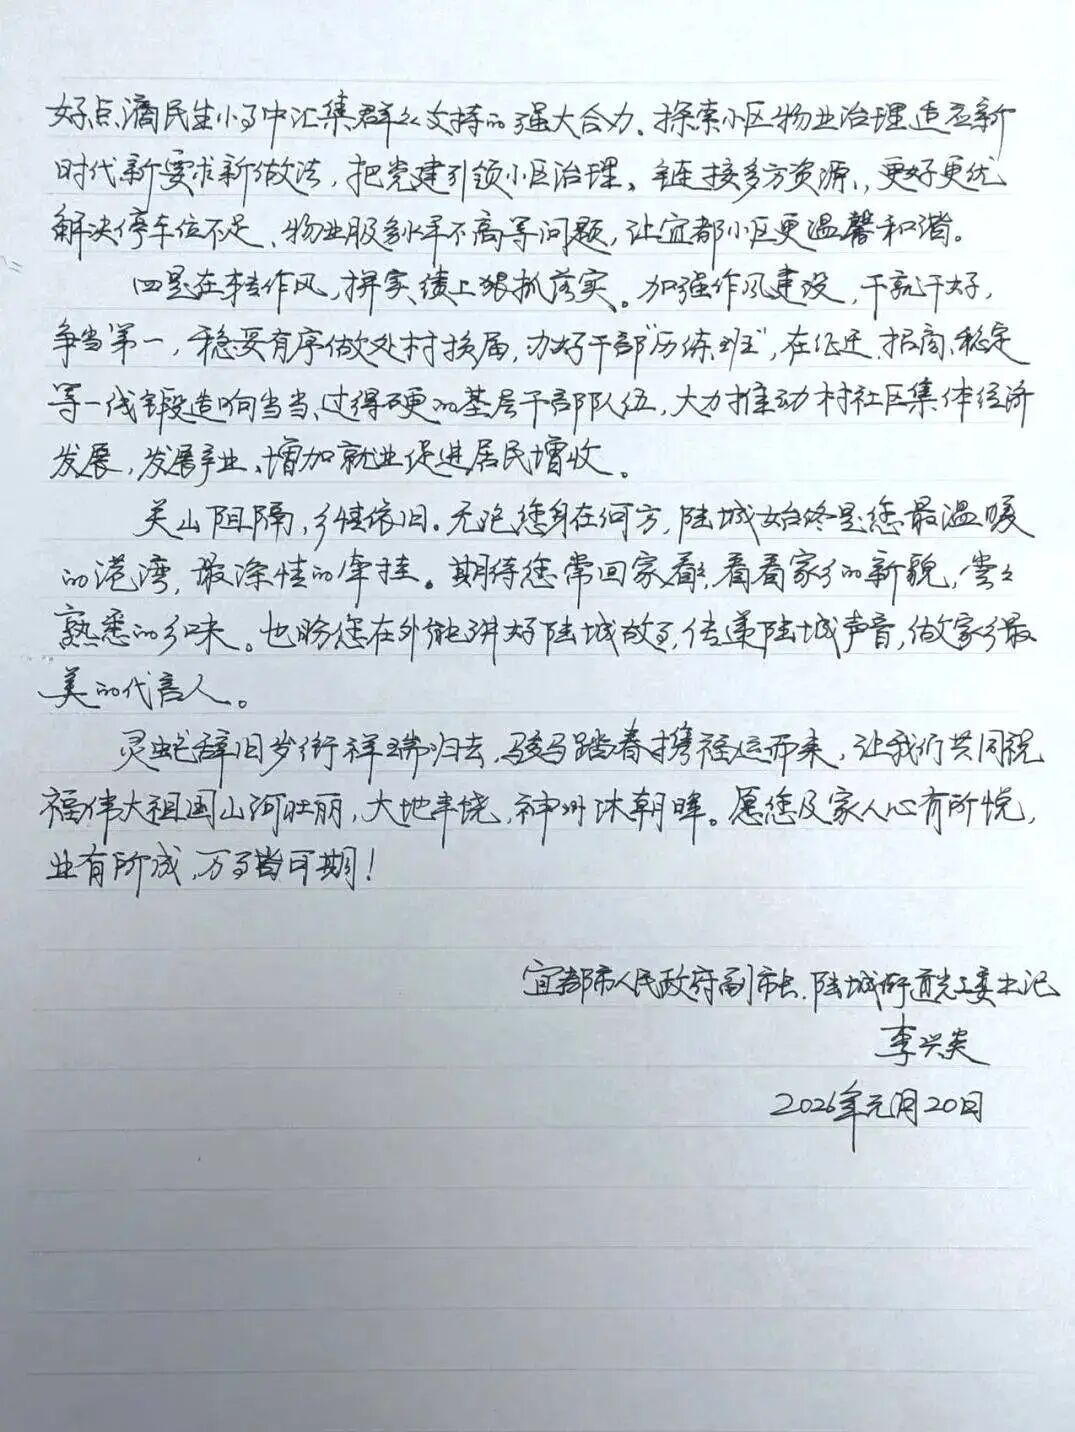 好点滴民生小事中汇集群众支持的强大合力。探索小区物业治理适应新
时代新要求新做法，把党建引领小区治理、链接多方资源，更好更优
解决停车位不足、物业服务水平不高等问题，让宜都小区更温馨和谐。
四是在转作风，拼实绩上狠抓落实。加强作风建设，干就干好，
争当第一，稳妥有序做处村换届，办好干部“历练班”，在征迁、招商、稳定
等一线锻造响当当、过得硬的基层干部队伍，大力推动村社区集体经济
发展，发展产业、增加就业促进居民增收。
关山阻隔，乡情依旧。无论您身在何方，陆城始终是您最温暖
的港湾，最深情的牵挂。期待您常回家看看，看看家乡的新貌，尝尝
熟悉的乡味。也盼您在外能讲好陆城故事，传递陆城声音，做家乡最
美的代言人。
灵蛇辞旧岁衔祥瑞归去，骏马踏春携福运而来，让我们共同祝
福伟大祖国山河壮丽，大地丰饶，神州沐朝晖。愿您及家人心有所悦，
业有所成，万事皆可期！
宜都市人民政府副市长、陆城街道党工委书记
李兴炎
2026年元月20日